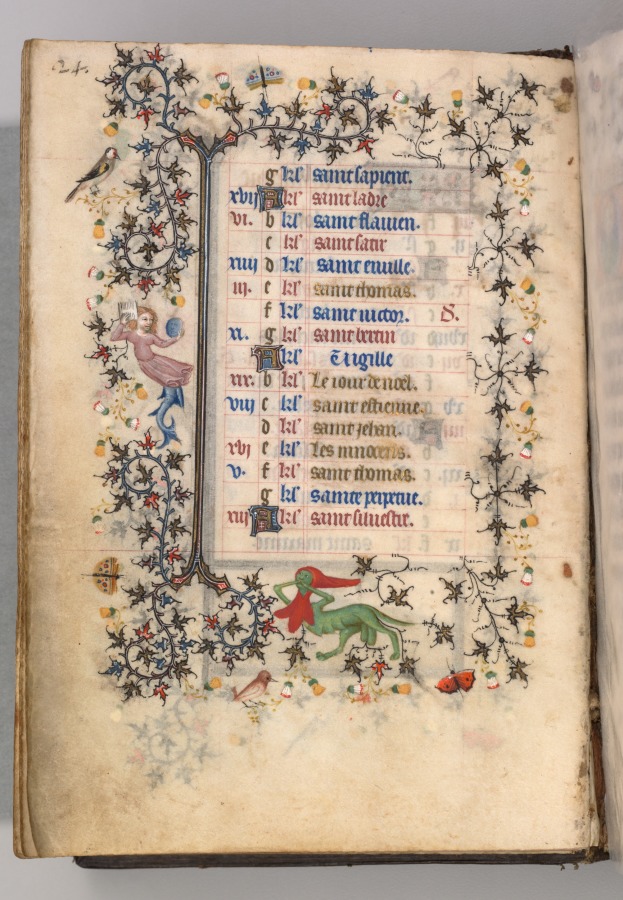 24.
g kl' saint sapient.
xvij A kl' saint ladre
vi. b kl' saint flauien.
c kl' saint satir
xiiij d kl' saint euuille.
iij. e kl' saint thomas.
f kl' saint uictor. D.
xi. g kl' saint bertin
A kl' Uigille
xix. b kl' Le iour de noel.
viij c kl' saint estienne.
d kl' saint jehan.
xvj e kl' Les innocens.
v. f kl' saint thomas.
g kl' sainte perpetue.
xiij A kl' saint siluestre.